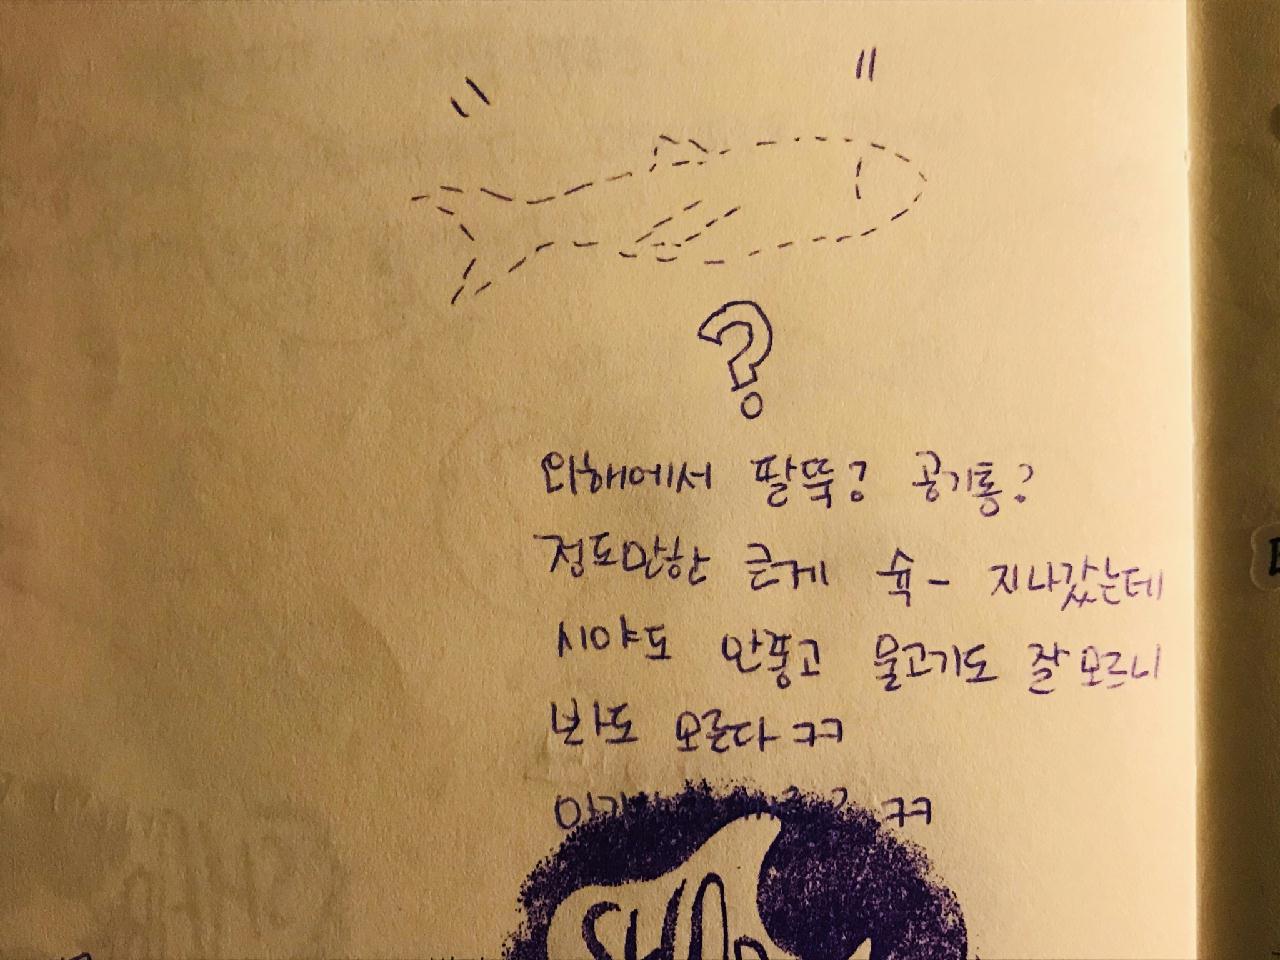 ?
외해에서 팔뚝? 공기통?
정도만한 큰게 슉- 지나갔는데
시야도 안좋고 물고기도 잘 모르니
봐도 모른다 ㅋㅋ
ㅋㅋ